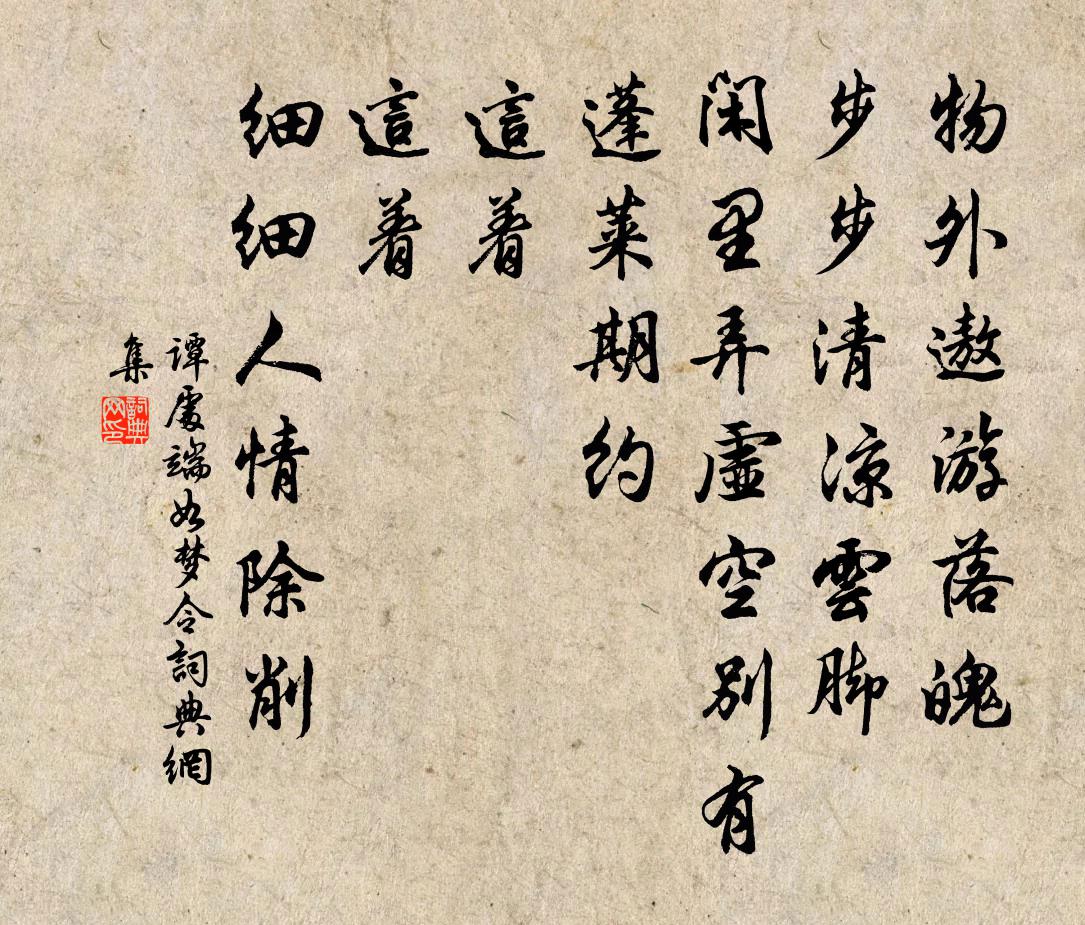 物外遨游落魄
步步清凉雲脚
閑里弄虛空別有
蓬莱期约
這着
這着
细细人情除削
谭處端如梦令詞典網
集
詞典
网印